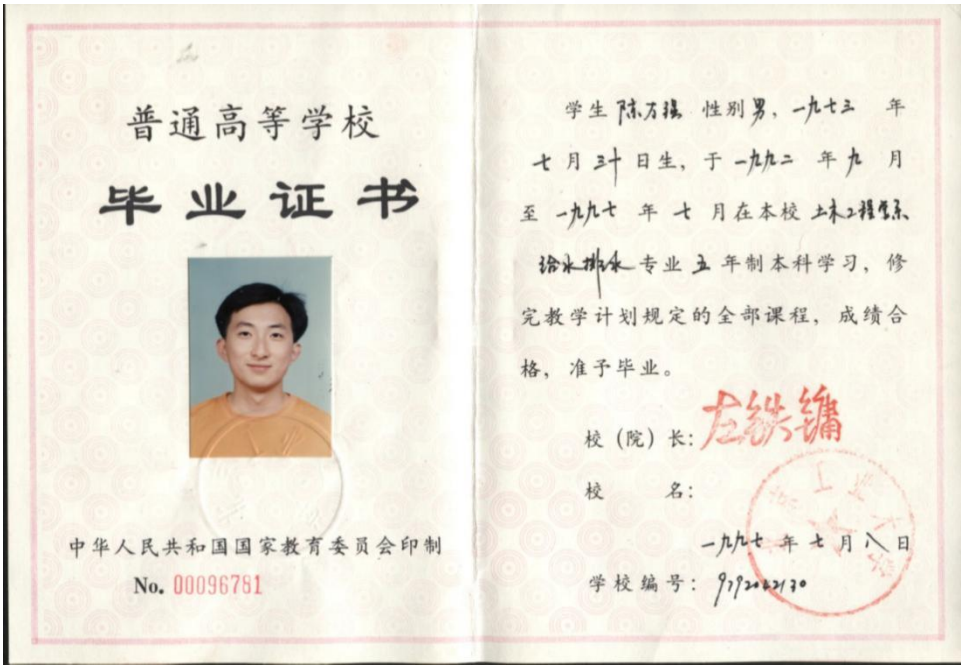 普通高等学校
毕业证书
中华人民共和国国家教育委员会印制
No. 00096781
学生 陈万强 性别男，一九七三 年
七月三十日生，于一九九二 年九 月
至一九九七 年 七 月在本校 土木工程学系
给水排水专业五年制本科学习，修
完教学计划规定的全部课程，成绩合
格，准予毕业。
校（院）长：左铁镛
校 名：
工业大学
一九九七年七月八日
学校编号：